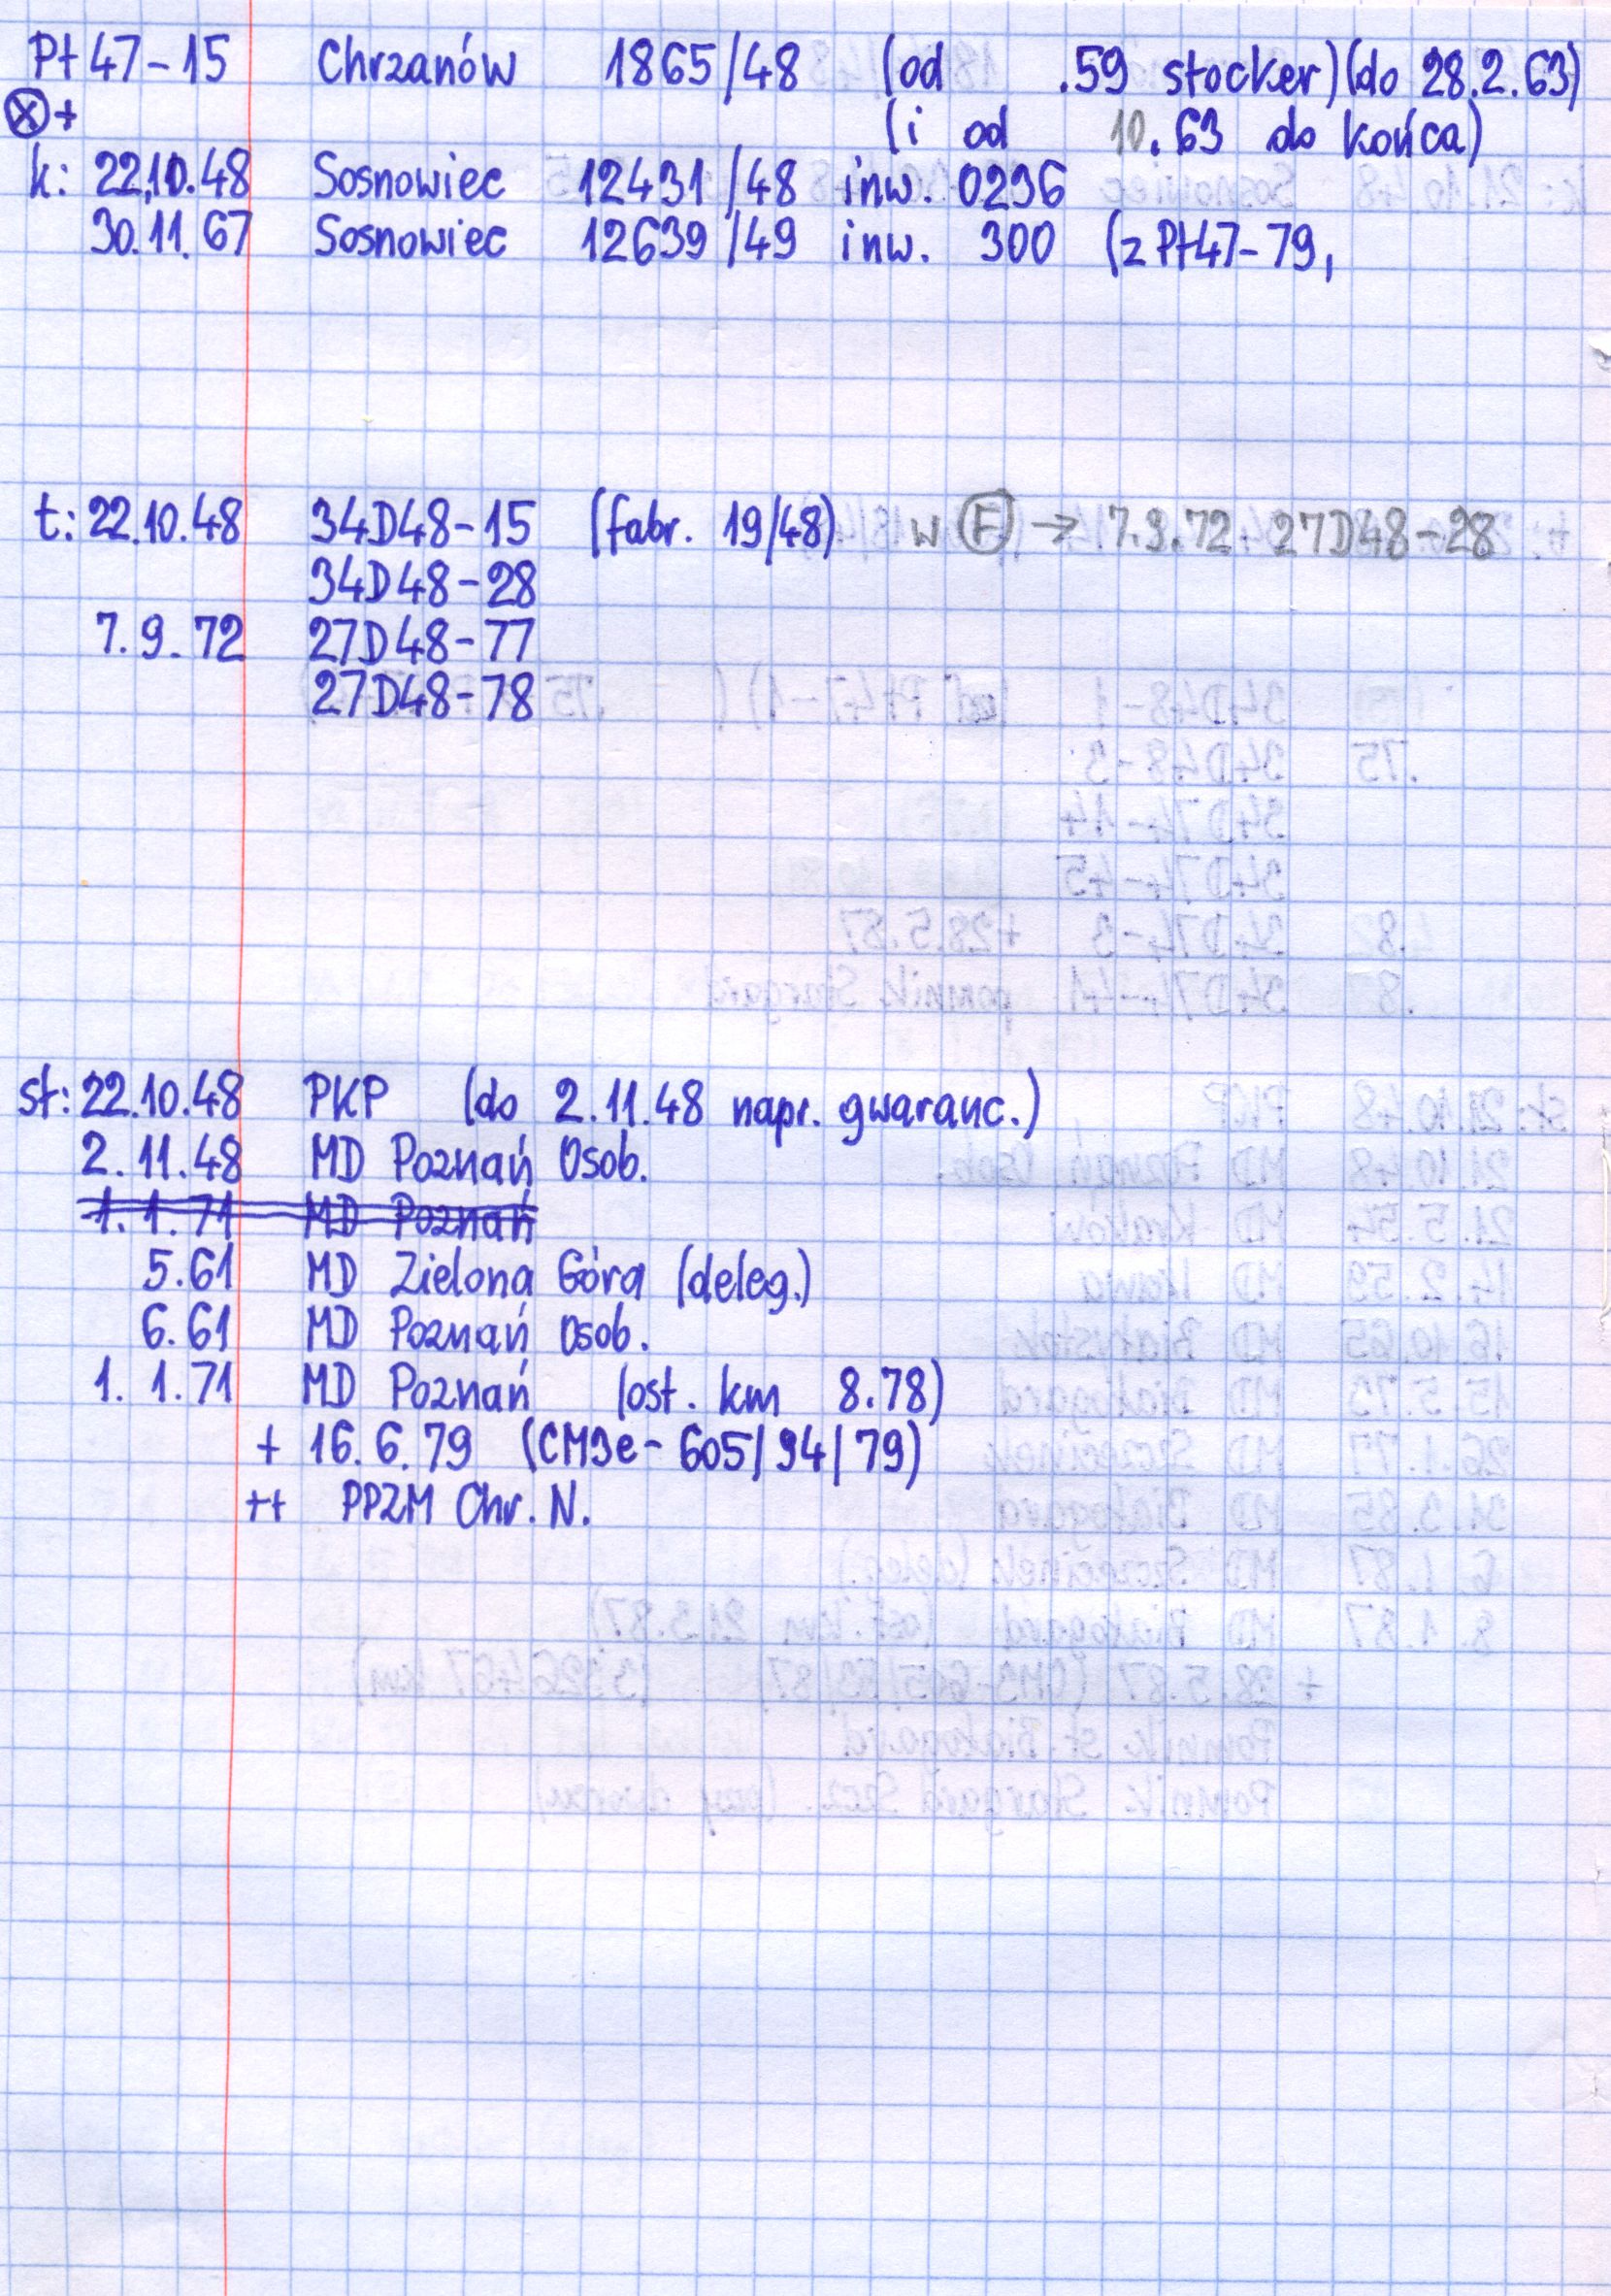 Pt47-15 Chrzanów 1865/48 (od .59 stocker) (do 28.2.63)
ⓧ+ (i od 10.63 do końca)
k: 22.10.48 Sosnowiec 12431/48 inw. 0296
30.11.67 Sosnowiec 12639/49 inw. 300 (z Pt47-79,
t: 22.10.48 34D48-15 (fabr. 19/48) w Ⓕ → 7.9.72 27D48-28
34D48-28
7.9.72 27D48-77
27D48-78
st: 22.10.48 PKP (do 2.11.48 napr. gwaranc.)
2.11.48 MD Poznań Osob.
1.1.71 MD Poznań
5.61 MD Zielona Góra (deleg.)
6.61 MD Poznań Osob.
1.1.71 MD Poznań (ost. km 8.78)
+ 16.6.79 (CM3e-605/94/79)
++ PPZM Chr. N.